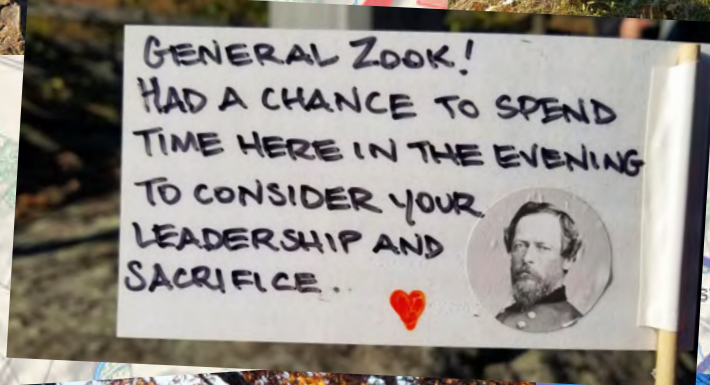 GENERAL ZOOK!
HAD A CHANCE TO SPEND
TIME HERE IN THE EVENING
TO CONSIDER YOUR
LEADERSHIP AND
SACRIFICE..